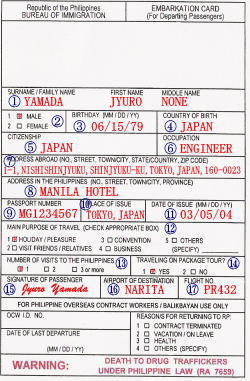 Republic of the Philippines EMBARKATION CARD
BUREAU OF IMMIGRATION (For Departing Passengers)
SURNAME / FAMILY NAME FIRST NAME MIDDLE NAME
① YAMADA JYURO NONE
1 ⊠ MALE BIRTHDAY (MM / DD / YY) COUNTRY OF BIRTH
② 2 □ FEMALE ③ 06/15/79 ④ JAPAN
CITIZENSHIP OCCUPATION
⑤ JAPAN ⑥ ENGINEER
ADDRESS ABROAD (NO., STREET, TOWN/CITY, STATE/COUNTRY, ZIP CODE)
1-1, NISHISHINJYUKU, SHINJYUKU-KU, TOKYO, JAPAN, 160-0023
ADDRESS IN THE PHILIPPINES (NO., STREET, TOWN/CITY, PROVINCE)
⑧ MANILA HOTEL
PASSPORT NUMBER ⑩ PLACE OF ISSUE DATE OF ISSUE (MM / DD / YY)
⑨ MG1234567 TOKYO, JAPAN ⑪ 03/05/04
MAIN PURPOSE OF TRAVEL (CHECK APPROPRIATE BOX) ⑫
1 ⊠ HOLIDAY / PLEASURE 3 □ CONVENTION 5 □ OTHERS
2 □ VISIT FRIENDS / RELATIVES 4 □ BUSINESS (SPECIFY)
NUMBER OF VISITS TO THE PHILIPPINES ⑬ TRAVELING ON PACKAGE TOUR? ⑭
1 □ 2 □ 3 or more 1 ⊠ YES 2 □ NO
SIGNATURE OF PASSENGER AIRPORT OF DESTINATION FLIGHT NO.
⑮ Jyuro Yamada ⑯ NARITA ⑰ PR432
FOR PHILIPPINE OVERSEAS CONTRACT WORKERS / BALIKBAYAN USE ONLY
OCW I.D. NO. REASONS FOR RETURNING TO RP:
1 □ CONTRACT TERMINATED
DATE OF LAST DEPARTURE 2 □ VACATION / ON LEAVE
3 □ HEALTH
(MM / DD / YY) 4 □ OTHERS (SPECIFY)
WARNING: DEATH TO DRUG TRAFFICKERS
UNDER PHILIPPINE LAW (RA 7659)